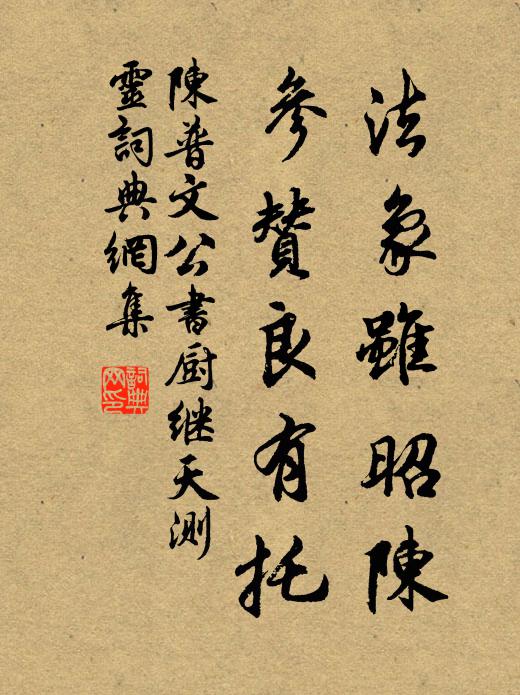 法象雖昭陳
參贊良有托
陳普文公書廚继天測
靈詞典網集
詞典
网印